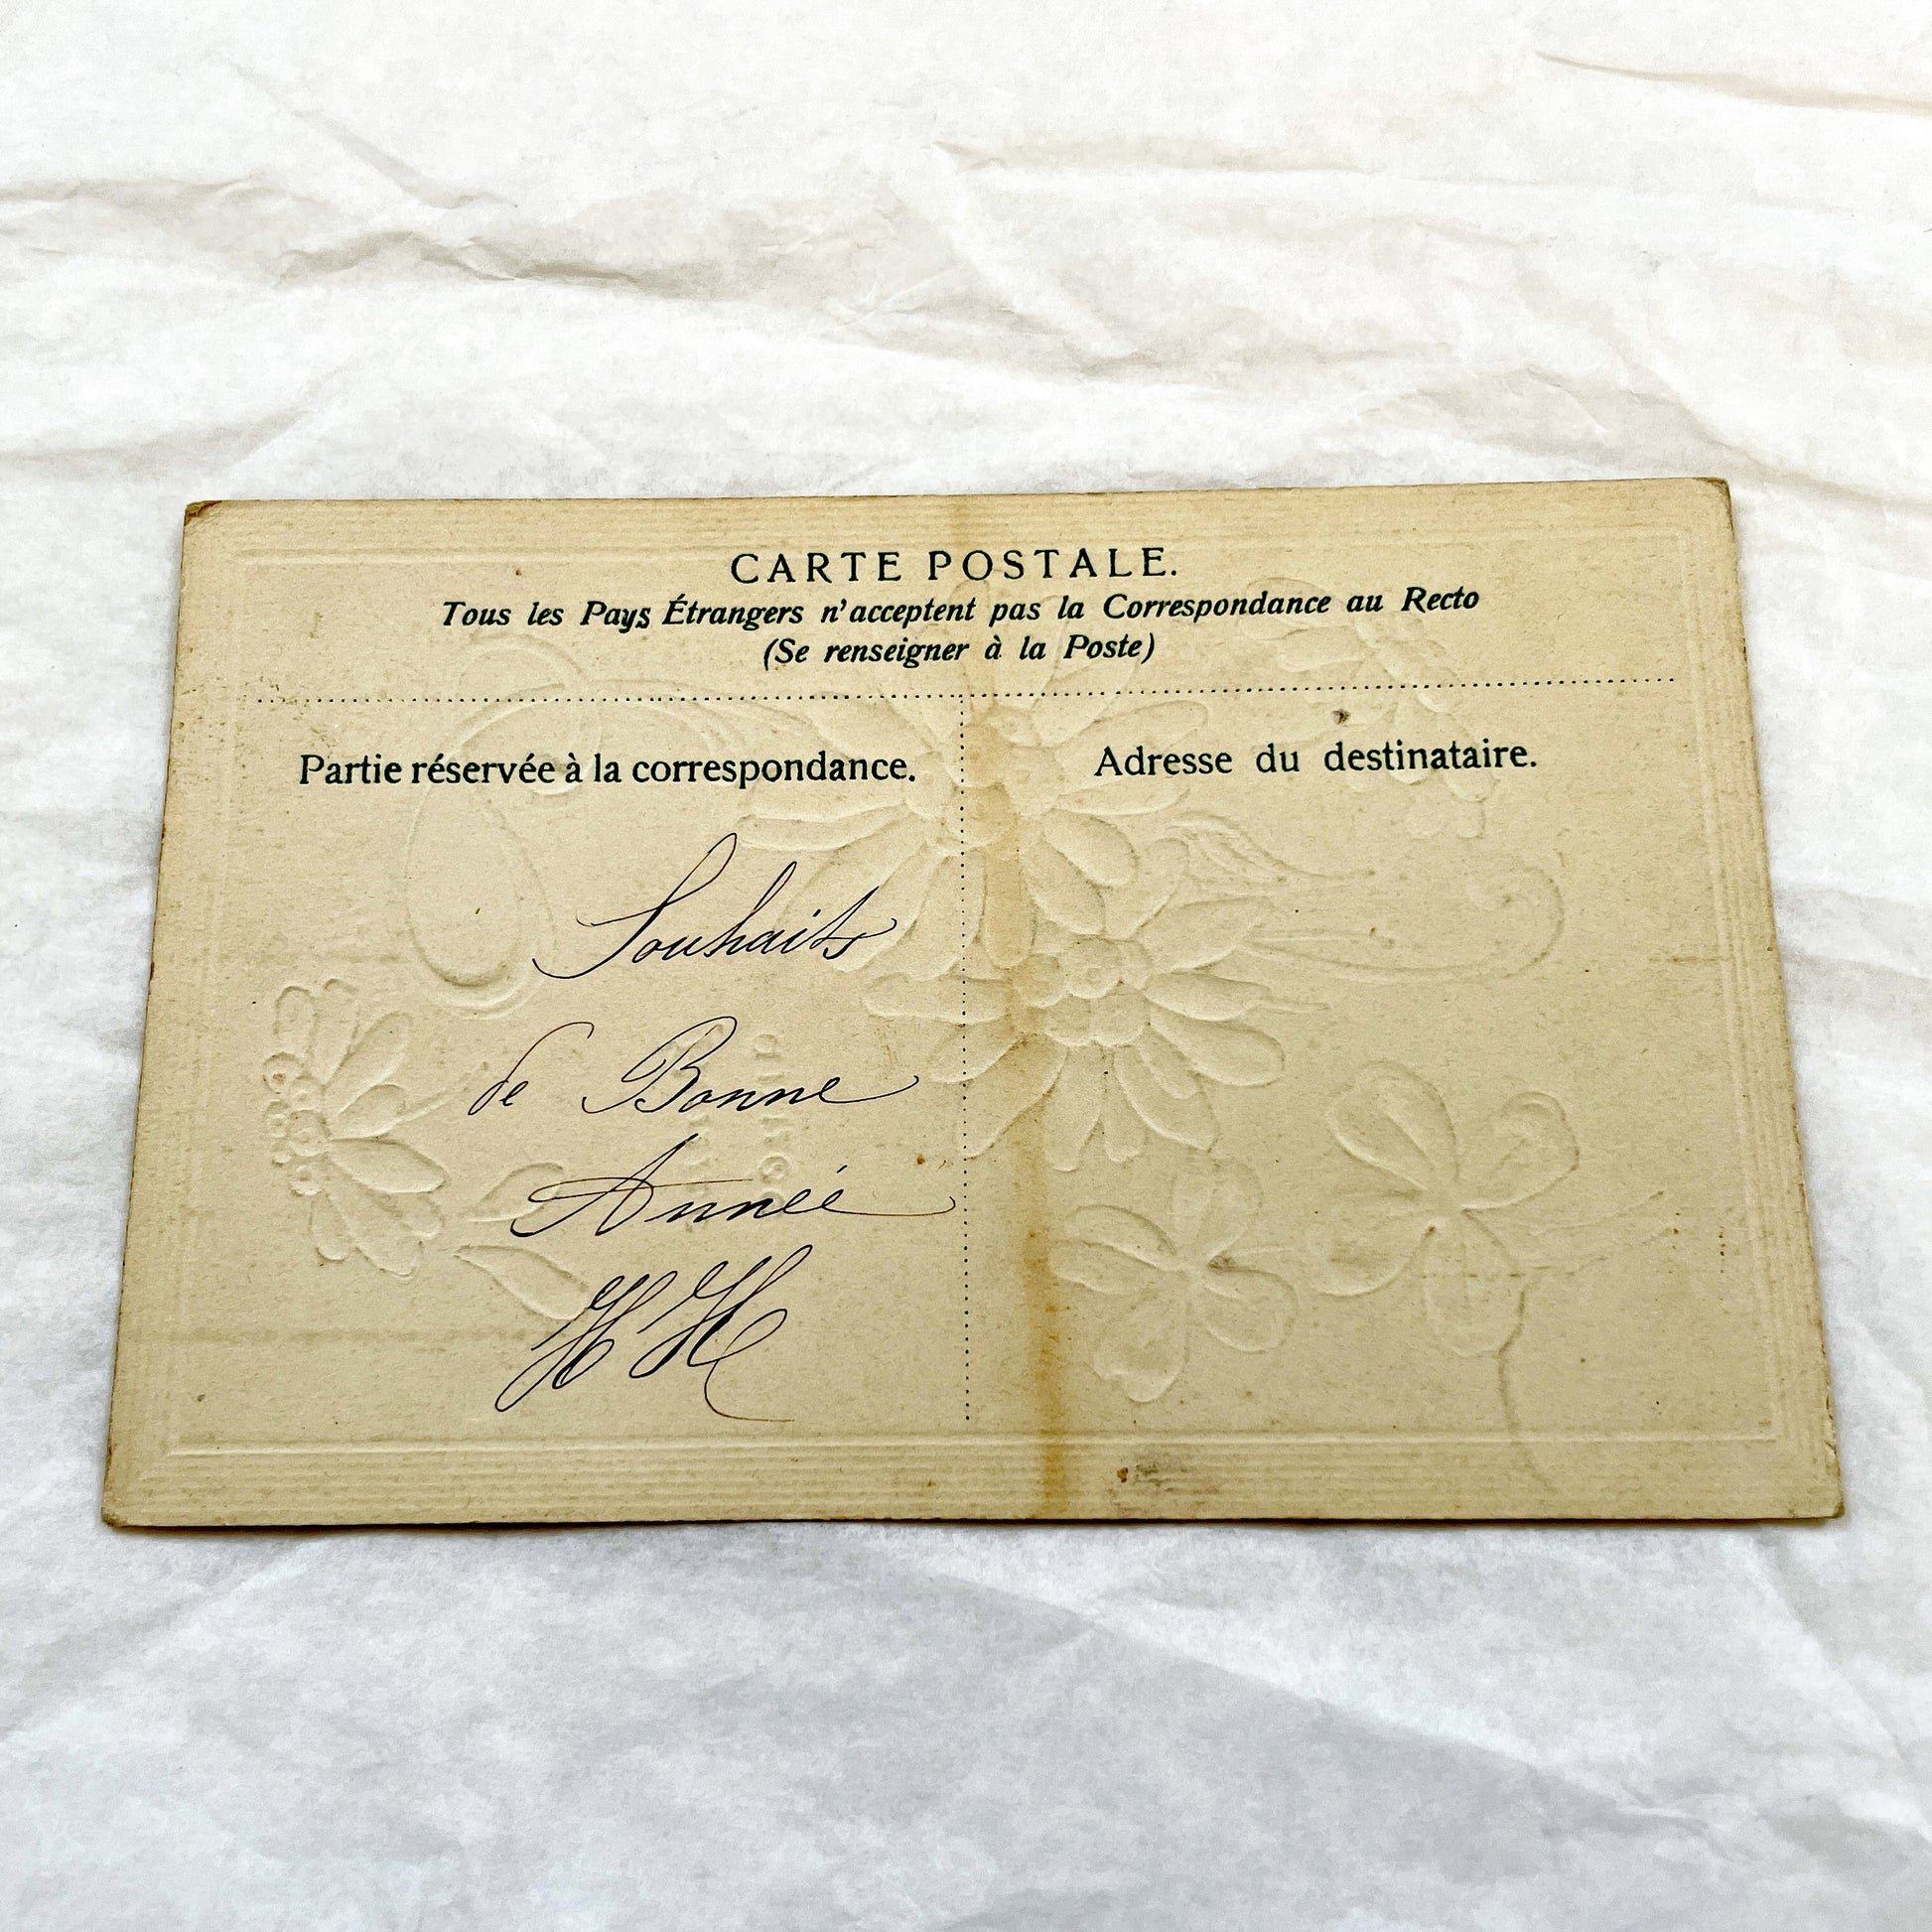 CARTE POSTALE.
Tous les Pays Étrangers n'acceptent pas la Correspondance au Recto
(Se renseigner à la Poste)
Partie réservée à la correspondance.
Adresse du destinataire.
Souhaits
de Bonne
Année
HH